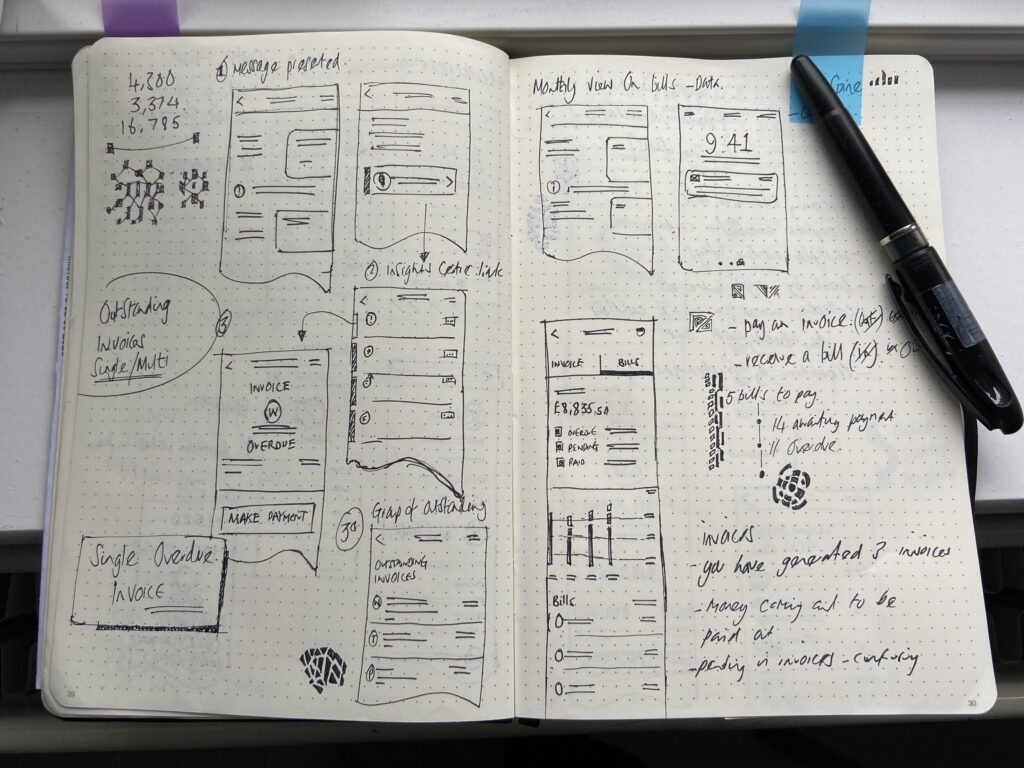 4,300
3,374
16,785
① Message presented.
② Insights Centre link
Outstanding
Invoices
Single/Multi
③
INVOICE
W
OVERDUE
MAKE PAYMENT
Single Overdue
Invoice
3a
Group of Outstanding
OUTSTANDING
INVOICES
29
Monthly View On bills - Data
9:41
- pay an invoice.
- receive a bill
INVOICE
BILLS
£8,835.50
OVERDUE
PENDING
PAID
Bills
5 bills to pay
14 awaiting payment
11 Overdue.
INVOICES
- you have generated 3 invoices
- Money coming out to be
paid at
- pending in invoices - confusing
30